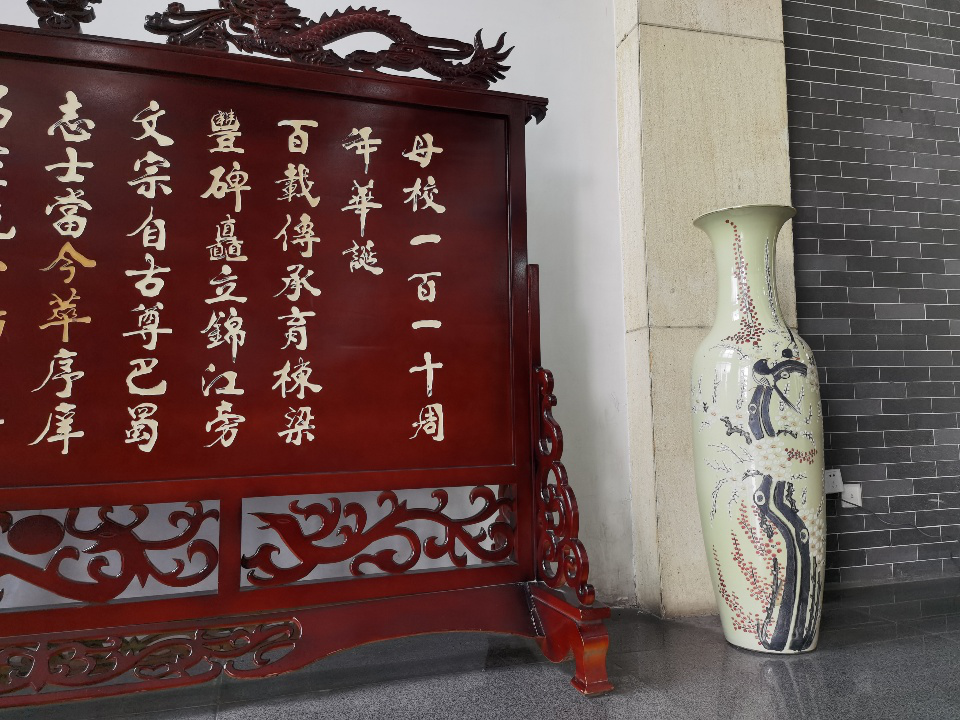 母校一百一十周
年華誕
百載傳承育棟梁
豐碑矗立錦江旁
文宗自古尊巴蜀
志士當今萃序庠